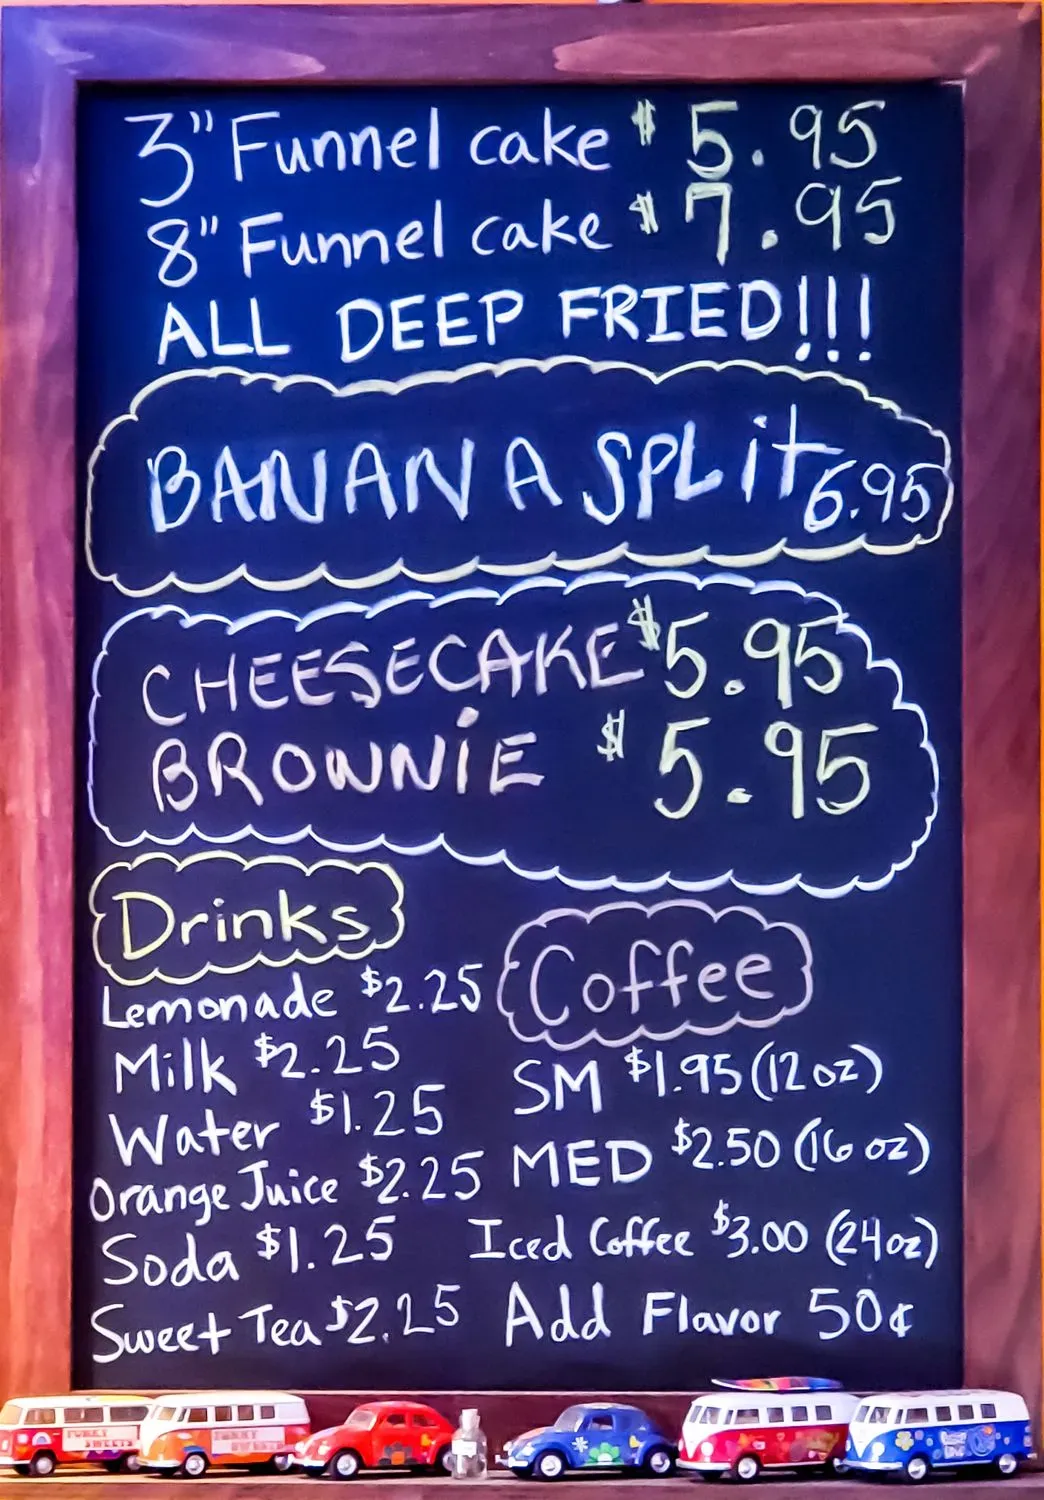 3" Funnel cake $5.95
8" Funnel cake $7.95
ALL DEEP FRIED!!!
BANANA SPLit 6.95
CHEESECAKE $5.95
BROWNiE $5.95
Drinks
Lemonade $2.25
Milk $2.25
Water $1.25
Orange Juice $2.25
Soda $1.25
Sweet Tea $2.25
Coffee
SM $1.95 (12 oz)
MED $2.50 (16 oz)
Iced Coffee $3.00 (24oz)
Add Flavor 50¢
FUNKY
SWEETS
FUNKY